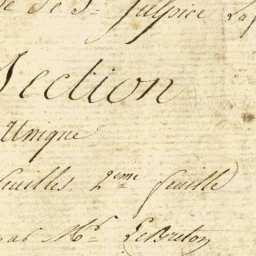 de St. Sulpice La
Section
Unique
feuilles. 2eme feuille
par Mr. LeBreton